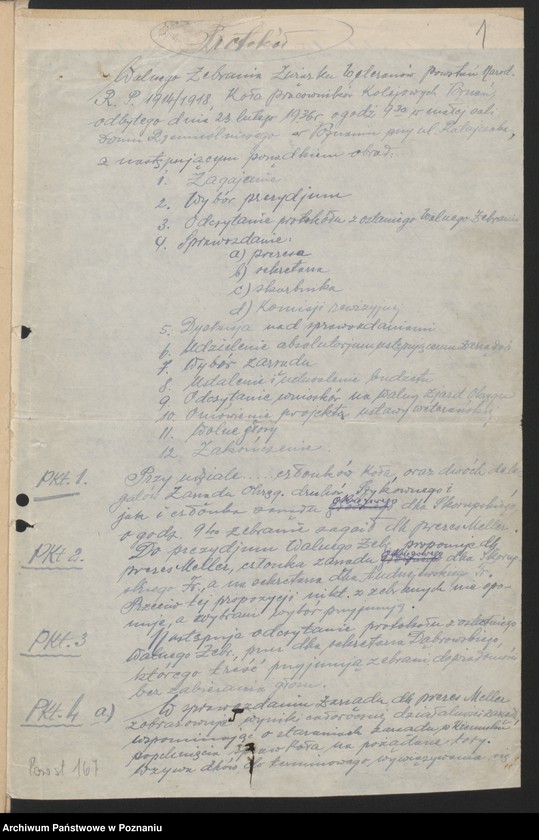 1
Protokół
Walnego Zebrania Związku Weteranów Powstań Narod.
R. P. 1914/1918, Koła Pracowników Kolejowych Poznań,
odbytego dnia 23 lutego 1936 r. o godz. 9 30 w małej sali
Domu Rzemieślniczego w Poznaniu przy ul. Ratajczaka,
z następującym porządkiem obrad:
1. Zagajenie
2. Wybór prezydjum
3. Odczytanie protokółu z ostatniego Walnego Zebrania
4. Sprawozdanie:
a) prezesa
b) sekretarza
c) skarbnika
d) Komisji rewizyjnej
5. Dyskusja nad sprawozdaniami
6. Udzielenie absolutorjum ustępującemu zarządowi
7. Wybór zarządu
8. Ustalenie i uchwalenie budżetu
9. Odczytanie wniosków na Walny Zjazd Okręgu
10. Omówienie projektu ustawy weterańskiej
11. Wolne głosy
12. Zakończenie
Pkt. 1. Przy udziale .... członków Koła, oraz dwóch dele-
gatów Zarządu Okręg. druhów Szykownego i
jak i członka zarządu Okręgowego dha Skorupskiego,
o godz. 9 40 zebranie zagaił dh prezes Meller.
Pkt 2. Do prezydjum Walnego Zebr. proponuje dh
prezes Meller, członka zarządu Okręgowego dha Skorup-
skiego Fr., a na sekretarza dha
Przeciw tej propozycji nikt z zebranych nie opo-
nuje, a wybrani wybór przyjmują.
Pkt. 3 Następuje odczytanie protokółu z ostatniego
Walnego Zebr. przez dha sekretarza Dąbrowskiego,
którego treść przyjmują zebrani do wiadomości
bez zabierania głosu.
Pkt. 4 a) W sprawozdaniu Zarządu, dh prezes Meller
zobrazowuje wyniki całorocznej działalności zarządu,
wspominając o staraniach zarządu w kierunku
popchnięcia spraw Koła na pożądane tory.
Wzywa dhów do terminowego wywiązywania się
Pow st 167
Archiwum Państwowe w Poznaniu